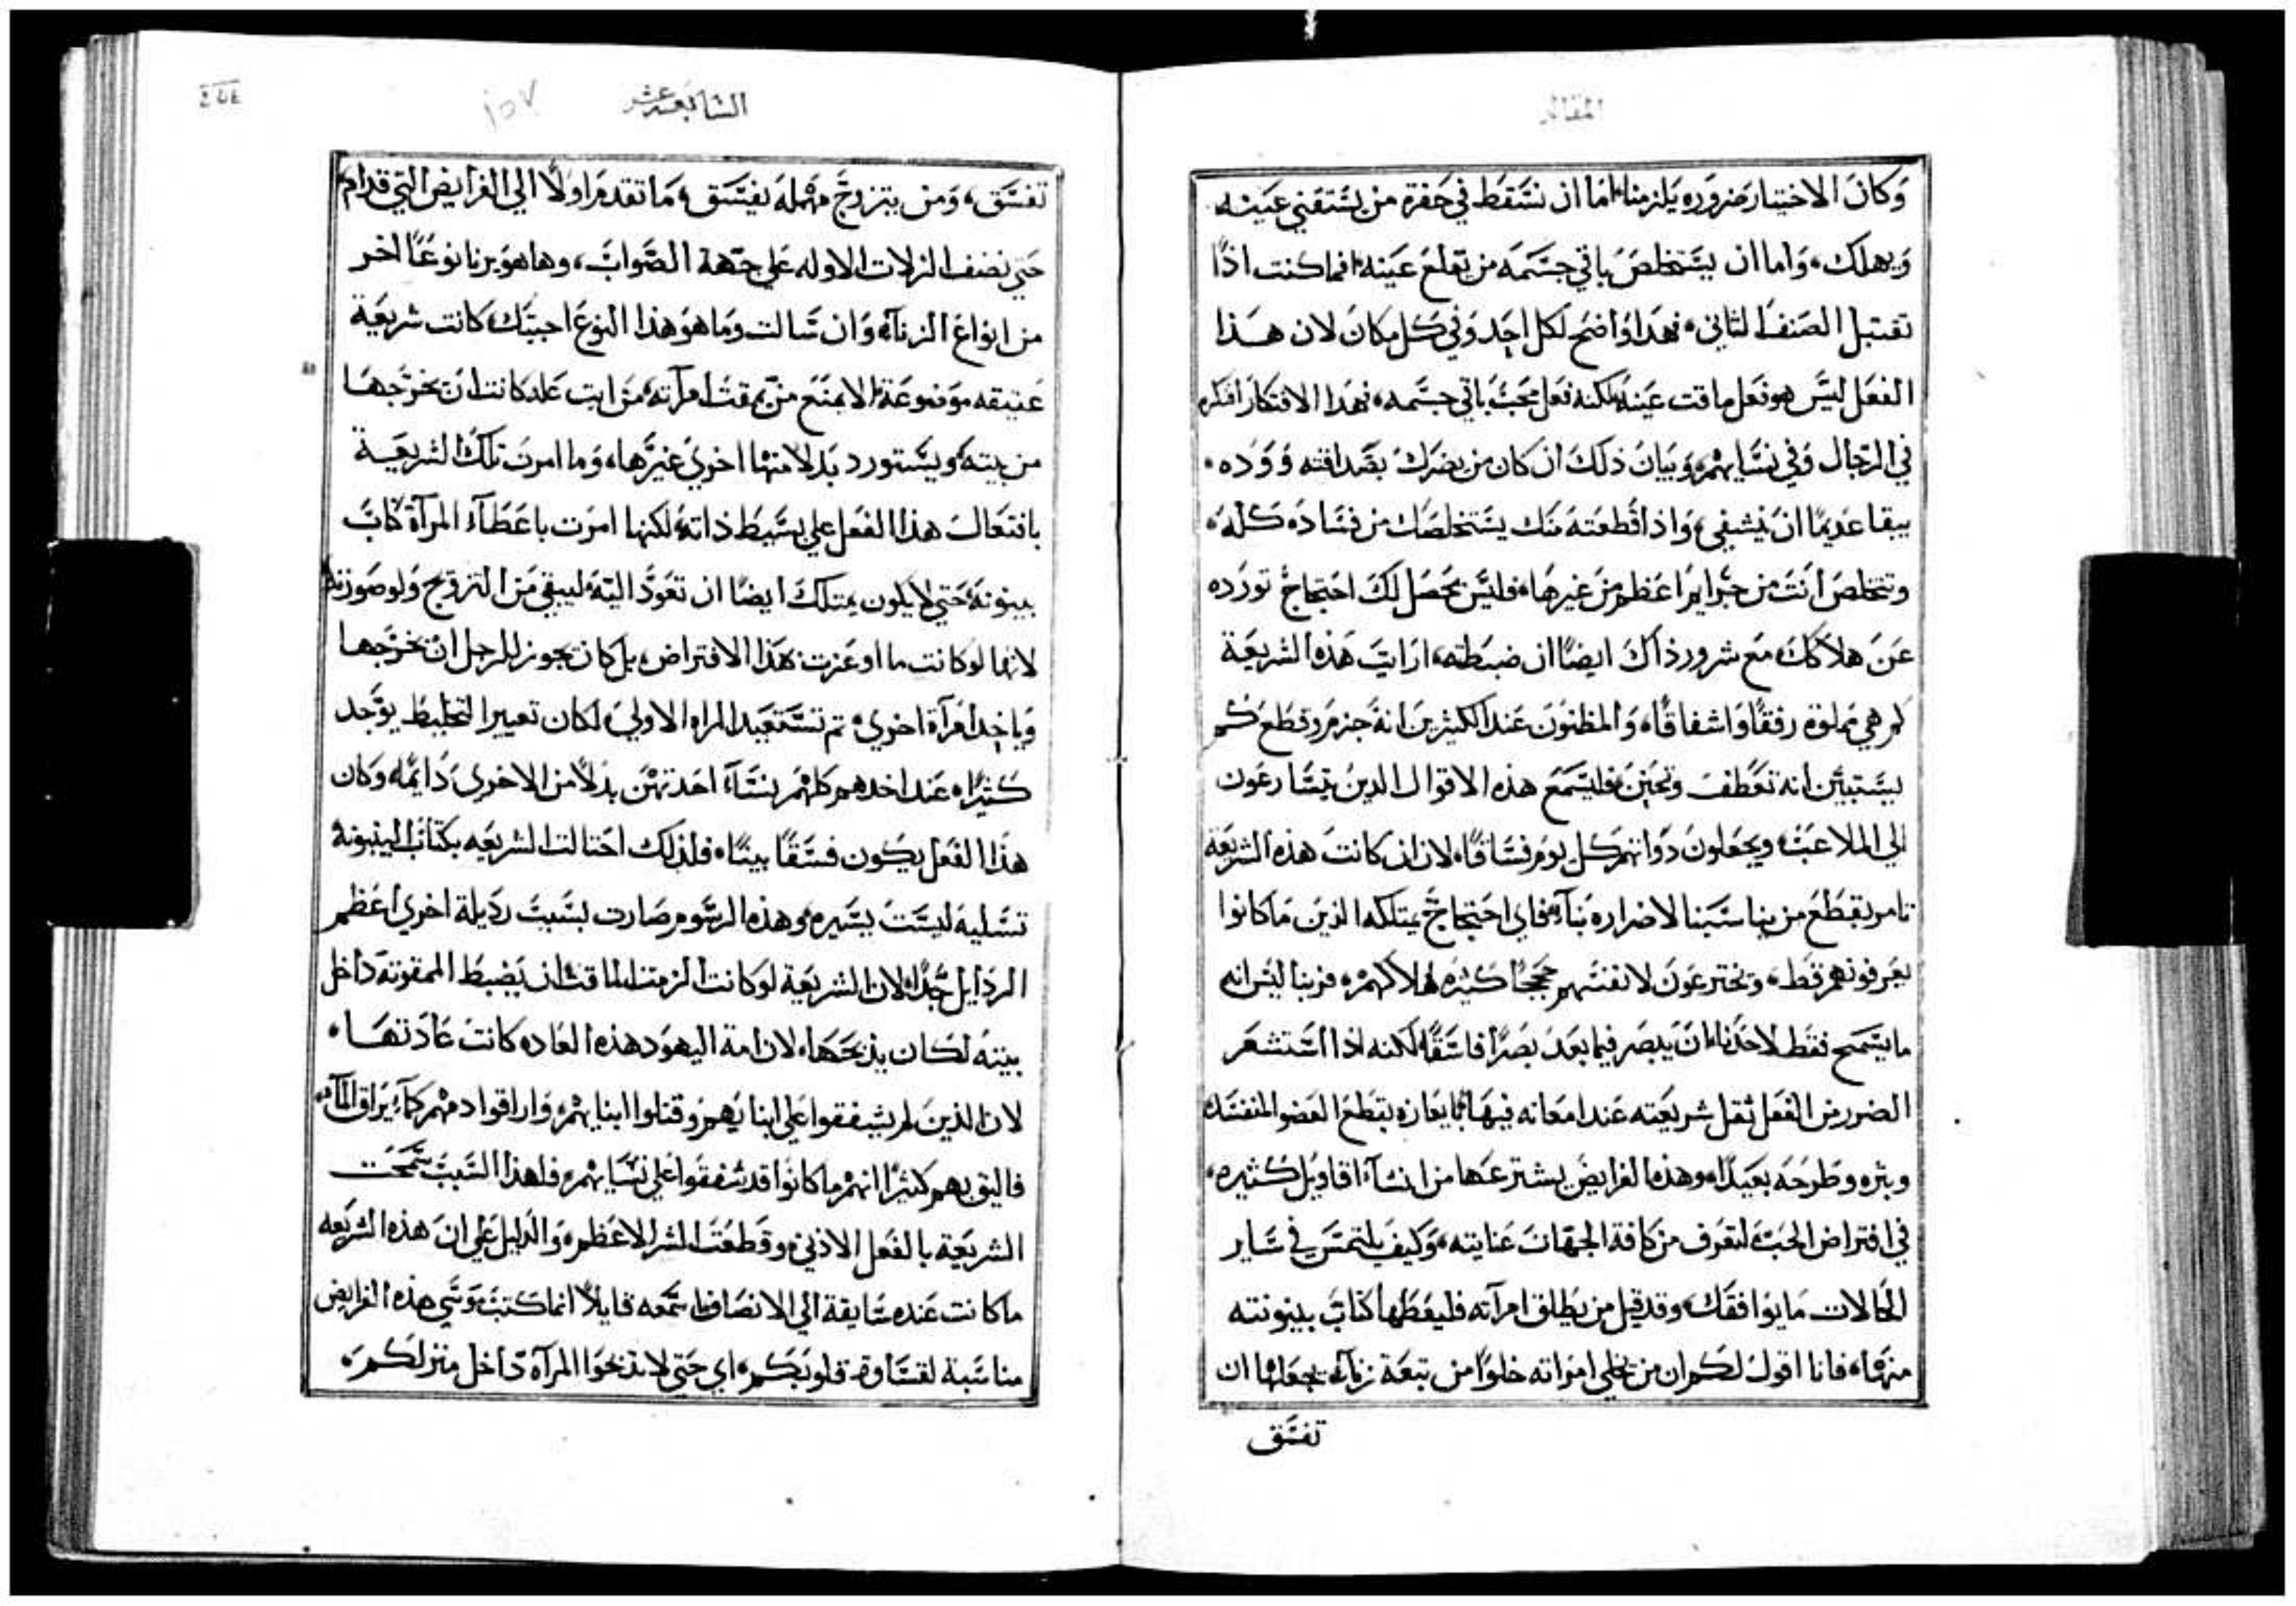 المقاله
وَكانَ الاختيار ضروره يَلزمنا، اما ان نسَقط في حَفرة من يستقني عَينه
وَيهلك، وَاما ان يستخلصَ باقي جسَمَه من تقلع عَينه، افما كنت اذًا
تقتبل الصَنف الثاني، فهَذا وَاضح لكل احد وَفي كل مكان لان هذا
الفعَل ليسَ هو فعَل ماقت عَينه لكنه فعَل محبّ باقي جسَمه، فهذا الافتكار افتكره
في الرجال وَفي نسَايهم، وَبيَان ذلكَ ان كان من يضرك بصَداقته وَوَده،
يبقا عَديمًا ان يشفي، وَاذا قطعته منك يستخلصَك من فسَاده كله،
وتتخلصَ انتَ من جرايم اعَظم من غيرهَا، فليسَ يحَصَل لكَ احتجاج تورده
عَن هلاكك، مَع شرور ذاكَ ايضًا ان ضبَطته، ارايت هَذه الشريعَة
كم هي مملوة رفقًا وَاشفاقًا، وَالمظنون عَند الكثيرين انهَ جزم وقطع كم
يستبين انه تعَطف وتحنن، فليسمَع هذه الاقوال الدين يتسَارعَون
الي الملاعَب، ويجعَلون ذوَاتهم كل يوم فسَاقًا، لان ان كانت هذه الشريعَة
تامر بقطع من يناسَبنا لاضراره بنا، فاي احتجاجٌ يمتلكه الذين مَا كانوا
يعَرفونهم قط، وَيخترعَون لانفسَهم حججًا كثيره لهلاكهم، فربنا ليسَ انه
ما يسَمح فقط لاحَدنا ان يبصر فيما بعَد بَصَرًا فاسَقًا، لكنه اذا استشعَر
الضرر من الفعَل ثقل شريعَته عَند امعَانه فيهَا بايعَازه بقطع العَضو المفسَد
وبتره وطرحَه بعَيدًا، وهذه الفرايضَ يشترعَها من انشآ اقاويل كثيره،
في افتراض الحبّ لتعَرف من كافة الجهَات عَنايته، وَكيف يلتمسَ في سَاير
الحَالات مَا يوافقك، وقد قيل من يطلق امرآته فليعَطها كتابَ بينونته
منهَا، فانا اقول لكم ان من يخلي امراته خلوًا من تبعَة زناء، يجعَلها ان
تفسَق
السَابعَه عَشر
تفسَق، وَمن يتزوجَ مهملة يفسَق، مَا تقدم اولًا الي الفرايض التي قدام
حَتي نصف الزلات الاوله عَلي جهة الصَواب، وها هو يرنا نوعًا اخر
من انواع الزناء، وَان سَالت وَما هو هذا النوع اجبتك كانت شريعَة
عَتيقه موَضوعَة، لا يمنع من يمقت امرآته من ايت عَله كانت ان يخرجهَا
من بيته، ويستورد بدلا منها اخري غيرها، وَما امرت تلك الشريعَة
بافتعَال هذا الفعَل علي بسَيط ذاته لكنها امرت باعَطآء المرآة كتاب
بينونة، حَتي لا يكون يمتلك ايضًا ان تعَود اليه ليبقي من التزويج وَلو صَورته
لانها لو كانت ما اوعَزت هَذا الافتراض، بل كان يجوز للرجل ان يخرجها
وَياخذ امرَآة اخري، ثم تستعَيد المراه الاولي، لكان تعيير التخليط يوجَد
كثيرًا، عَند احدهم كلهم نسَآء احَدتهن بدلًا من الاخري دَايمًا، وكان
هذا الفعَل يكون فسَقًا بينًا، فلذلك احَتالت الشريعَه بكتاب البينونة
تسَلية ليسَت يسَيره، وهذه الرسَوم صَارت بسَبب رذيلة اخري اعَظم
الردايل جدًا، لان الشريعَة لو كانت الزمت الماقت ان يَضبط الممقوتة داخل
بيته لكان يذبحَهَا، لان امة اليهود هذه العَاده كانتَ عَادتهَا،
لان الذين لم يشفقوا علي ابنايهم، وقتلوا ابنايهم، وَاراقوا دمهم كما يَراق الماء،
فاليق بهم كثيرًا انهم ما كانوا قد شفقوا علي نسَايهم، فلهذا السَبب سَمحَت
الشريعَة بالفعَل الادني، وَقطعَت الشر الاعظم، وَالدليل علي انَ هذه الشريعَه
ما كانت عَنده سَايقة الي الانصَاف، اسَمعه قايلًا انما كتبَ موَسَي هذه الفرايض
مناسَبة لقسَاوة قلوبَكم، اي حَتي لا تذبحَوا المرآة دَاخل منزلكم،